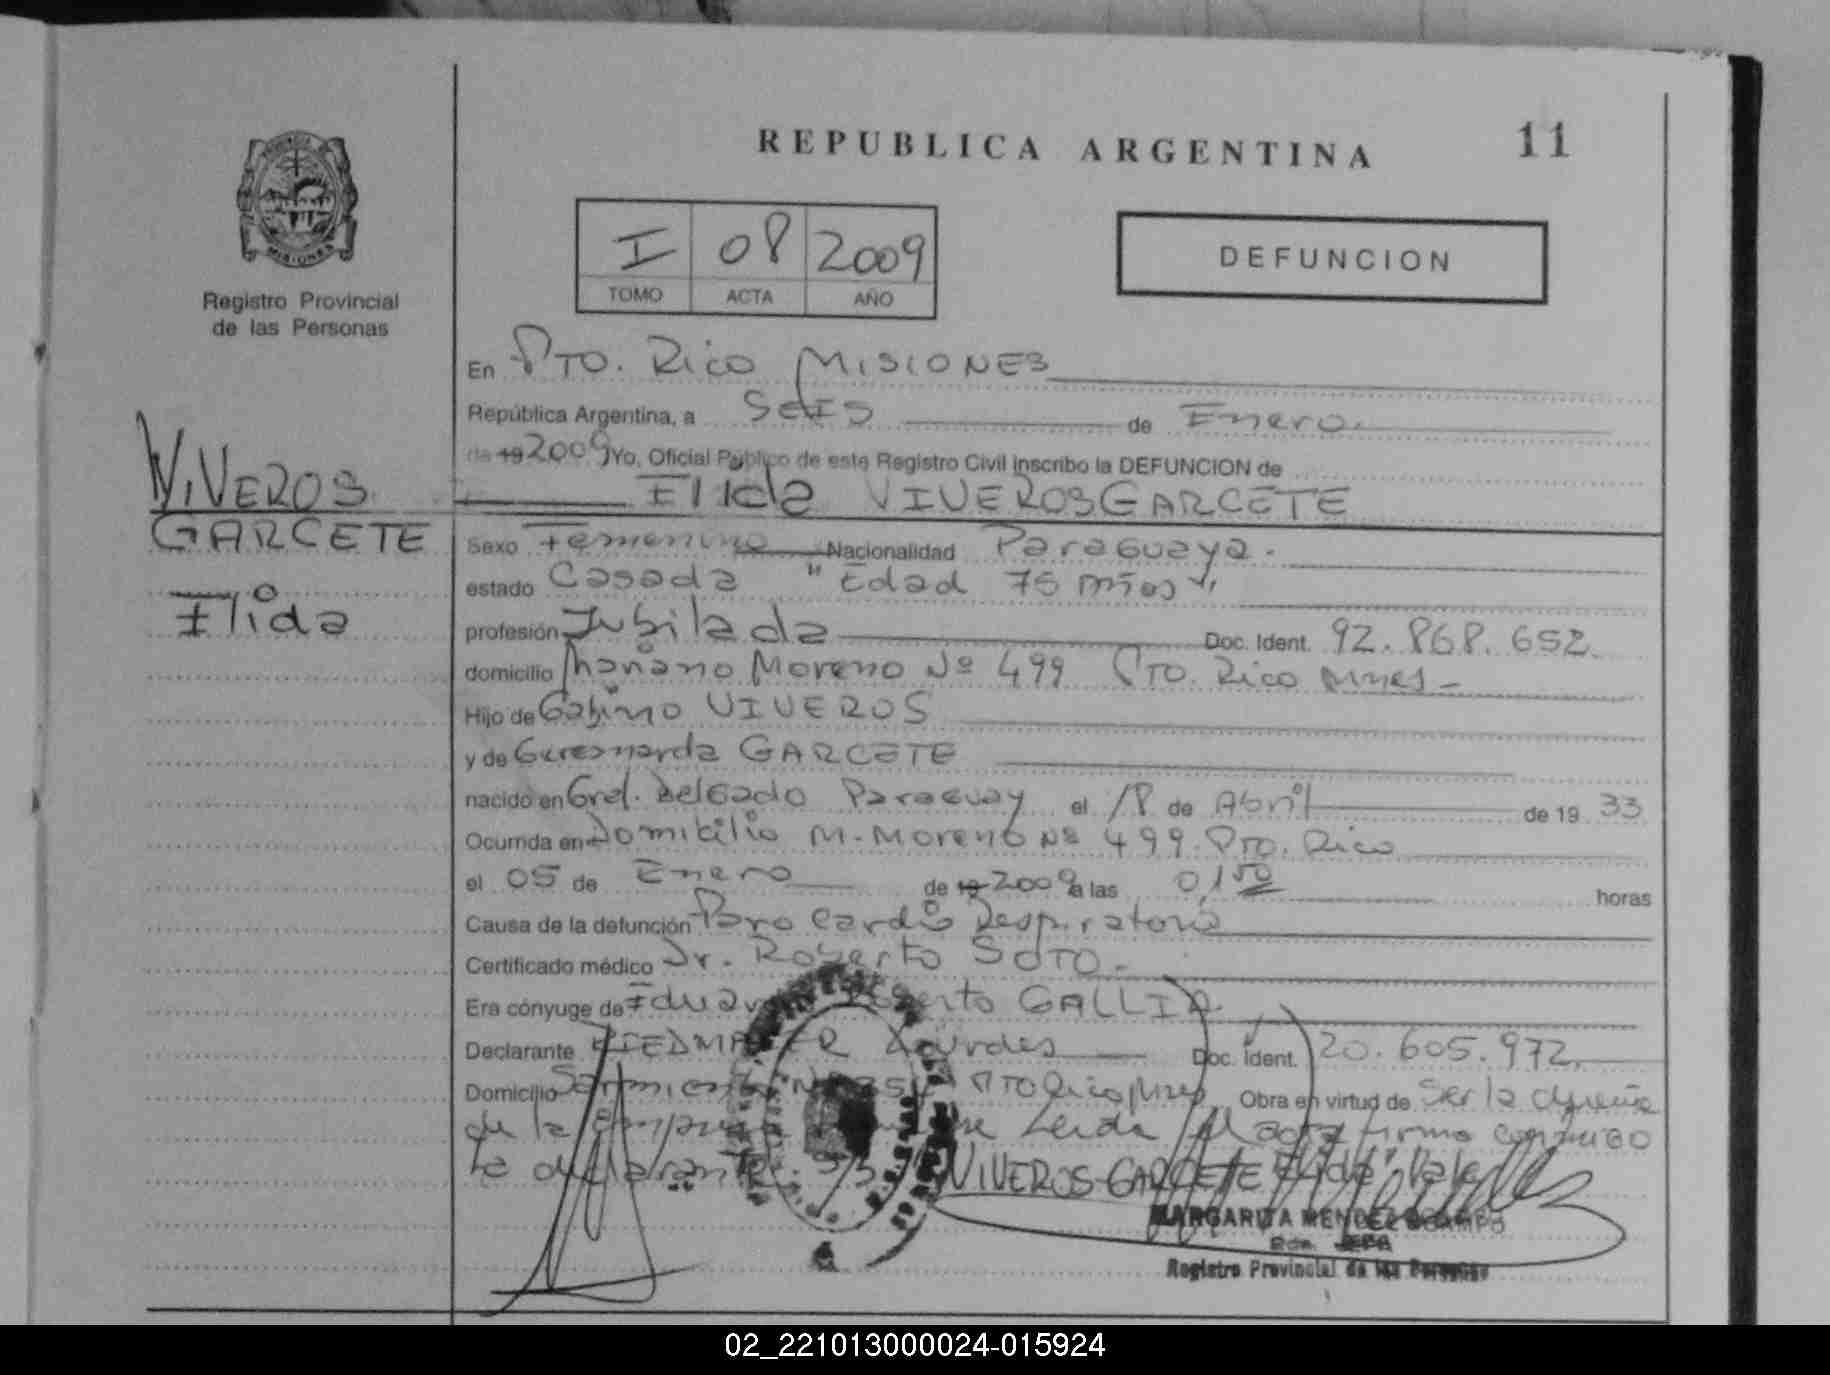 REPUBLICA ARGENTINA 11
I 08 2009
TOMO ACTA AÑO
DEFUNCION
PROVINCIA
MISIONES
Registro Provincial
de las Personas
VIVEROS
GARCETE
Elida
En Pto. Rico MISIONES
República Argentina, a SEIS de Enero.
de 19 2009 Yo, Oficial Público de este Registro Civil inscribo la DEFUNCION de
Elida VIVEROS GARCETE
Sexo Femenino Nacionalidad Paraguaya.
estado Casada "Edad 75 años"
profesión Jubilada Doc. Ident. 92.868.652.
domicilio Mariano Moreno Nº 499 Pto. Rico Mnes-
Hijo de Gabino VIVEROS
y de GARCETE
nacido en Gral. Delgado Paraguay el 18 de Abril de 19 33
Ocurrida en Domicilio M. Moreno Nº 499. Pto. Rico
el 05 de Enero de 19 2009 a las 01 50 horas
Causa de la defunción Paro Cardio Respiratorio
Certificado médico Dr. Roberto SOTO-
Era cónyuge de GALLIA
Declarante Lourdes Doc. Ident. 20.605.972.
Domicilio Sarmiento Pto Rico Mnes Obra en virtud de Ser la dueña
de la Empresa Leida el acta firma conmigo
la declarante. VIVEROS-GARCETE Elida" Vale
MARGARITA MENDEZ OCAMPO
Registro Provincial de las Personas
02_221013000024-015924